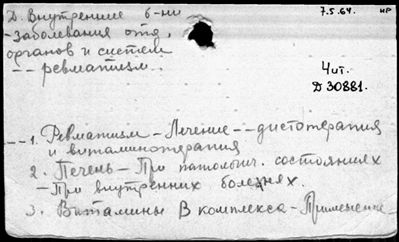 Д. Внутренние б-ни
7.5.64.
НР
- заболевания отд.
органов и систем
-- ревматизм.
Чит.
Д 30881.
-- 1. Ревматизм - Лечение -- диетотерапия
и витаминотерапия
2. Печень - При патологич. состояниях
- При внутренних болезнях.
3. Витамины В комплекса - Применение -